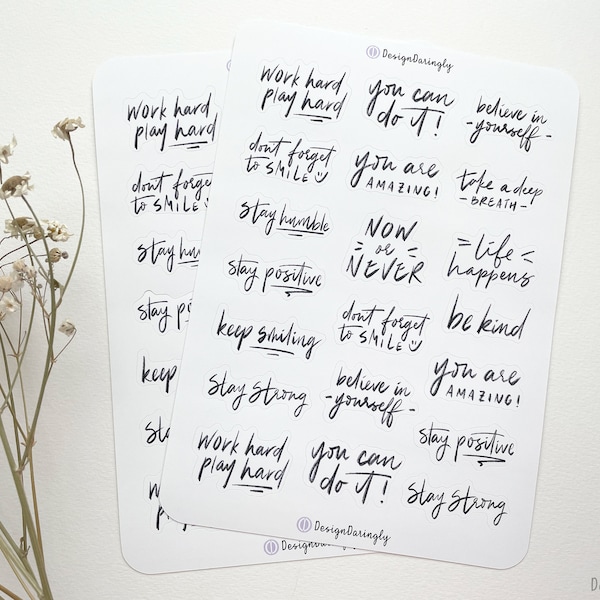 DesignDaringly
work hard
play hard
you can
do it!
believe in
-yourself-
dont forget
to SMILE
you are
AMAZING!
take a deep
-BREATH-
stay humble
NOW
or
NEVER
life
happens
stay positive
keep smiling
dont forget
to SMILE
be kind
you are
AMAZING!
stay strong
believe in
-yourself-
stay positive
work hard
play hard
you can
do it!
stay strong
DesignDaringly
work hard
play hard
dont forget
to SMILE
stay
stay
keep